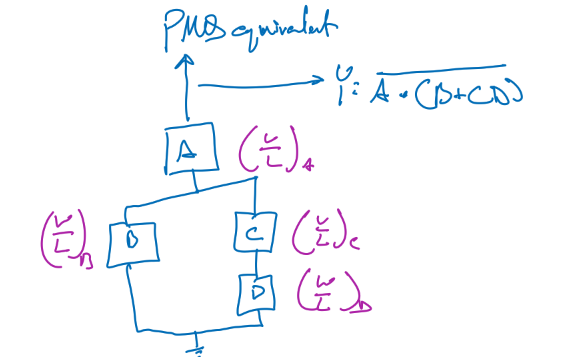 PMOS equivalent
Y = \overline{A • (B+CD)}
A (W/L)_A
(W/L)_B B C (W/L)_C
D (W/L)_D